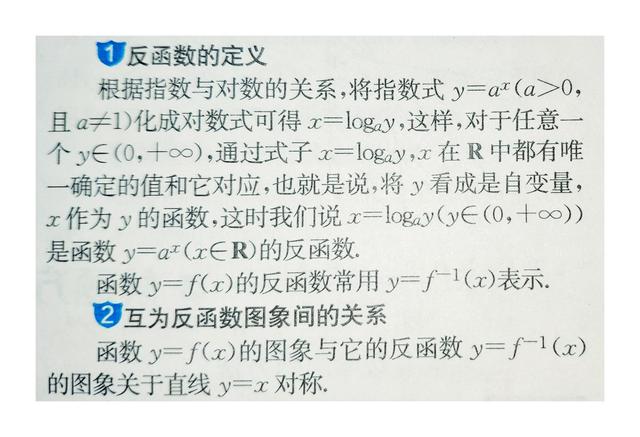 1 反函数的定义
根据指数与对数的关系,将指数式 y=aˣ(a>0,
且 a≠1)化成对数式可得 x=logₐy,这样,对于任意一
个 y∈(0,+∞),通过式子 x=logₐy,x 在 R 中都有唯
一确定的值和它对应,也就是说,将 y 看成是自变量,
x 作为 y 的函数,这时我们说 x=logₐy(y∈(0,+∞))
是函数 y=aˣ(x∈R)的反函数.
函数 y=f(x)的反函数常用 y=f⁻¹(x)表示.
2 互为反函数图象间的关系
函数 y=f(x)的图象与它的反函数 y=f⁻¹(x)
的图象关于直线 y=x 对称.